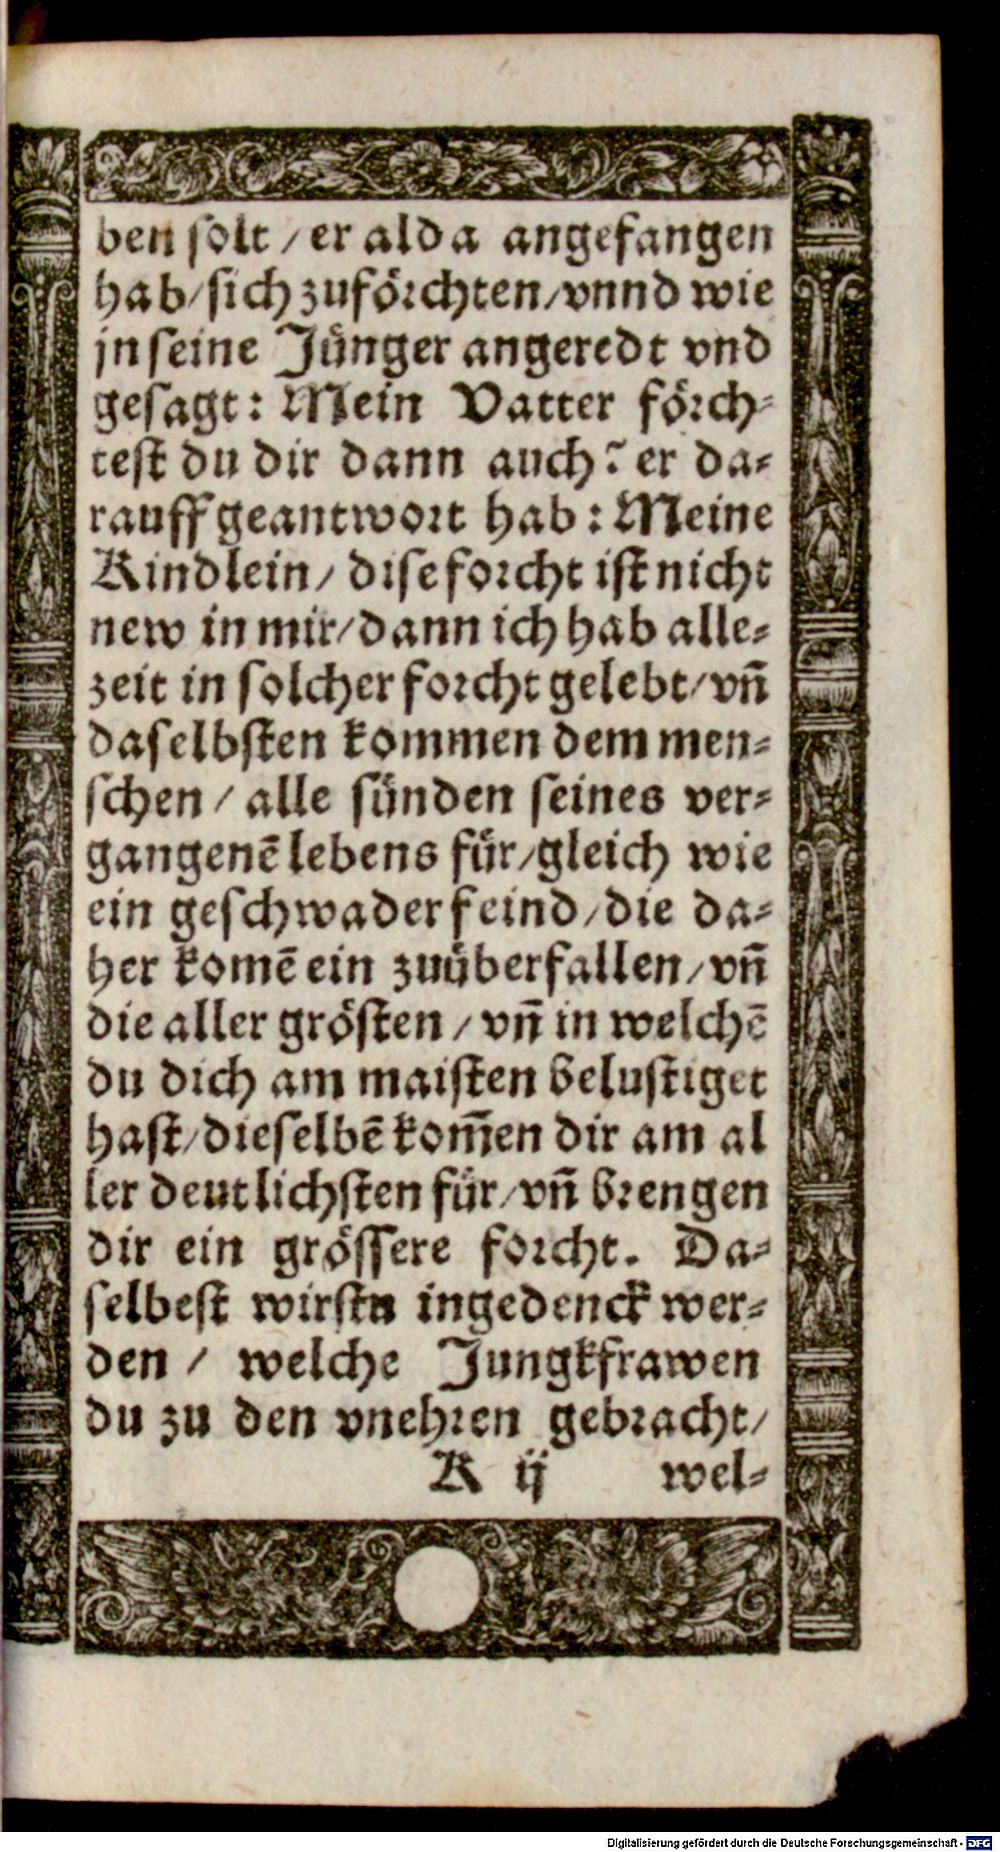 ben solt / er alda angefangen
hab / sich zuförchten / vnnd wie
jn seine Jünger angeredt vnd
gesagt: Mein Vatter förch-
test du dir dann auch? er da-
rauff geantwort hab: Meine
Kindlein / dise forcht ist nicht
new in mir / dann ich hab alle-
zeit in solcher forcht gelebt / vñ
daselbsten kommen dem men-
schen / alle sünden seines ver-
gangenē lebens für / gleich wie
ein geschwader feind / die da-
her komē ein zuüberfallen / vñ
die aller grösten / vñ in welchē
du dich am maisten belustiget
hast / dieselbē kom̄en dir am al
ler deutlichsten für / vñ brengen
dir ein grössere forcht. Da-
selbest wirstu ingedenck wer-
den / welche Jungkfrawen
du zu den vnehren gebracht /
K ij wel-
Digitalisierung gefördert durch die Deutsche Forschungsgemeinschaft - DFG